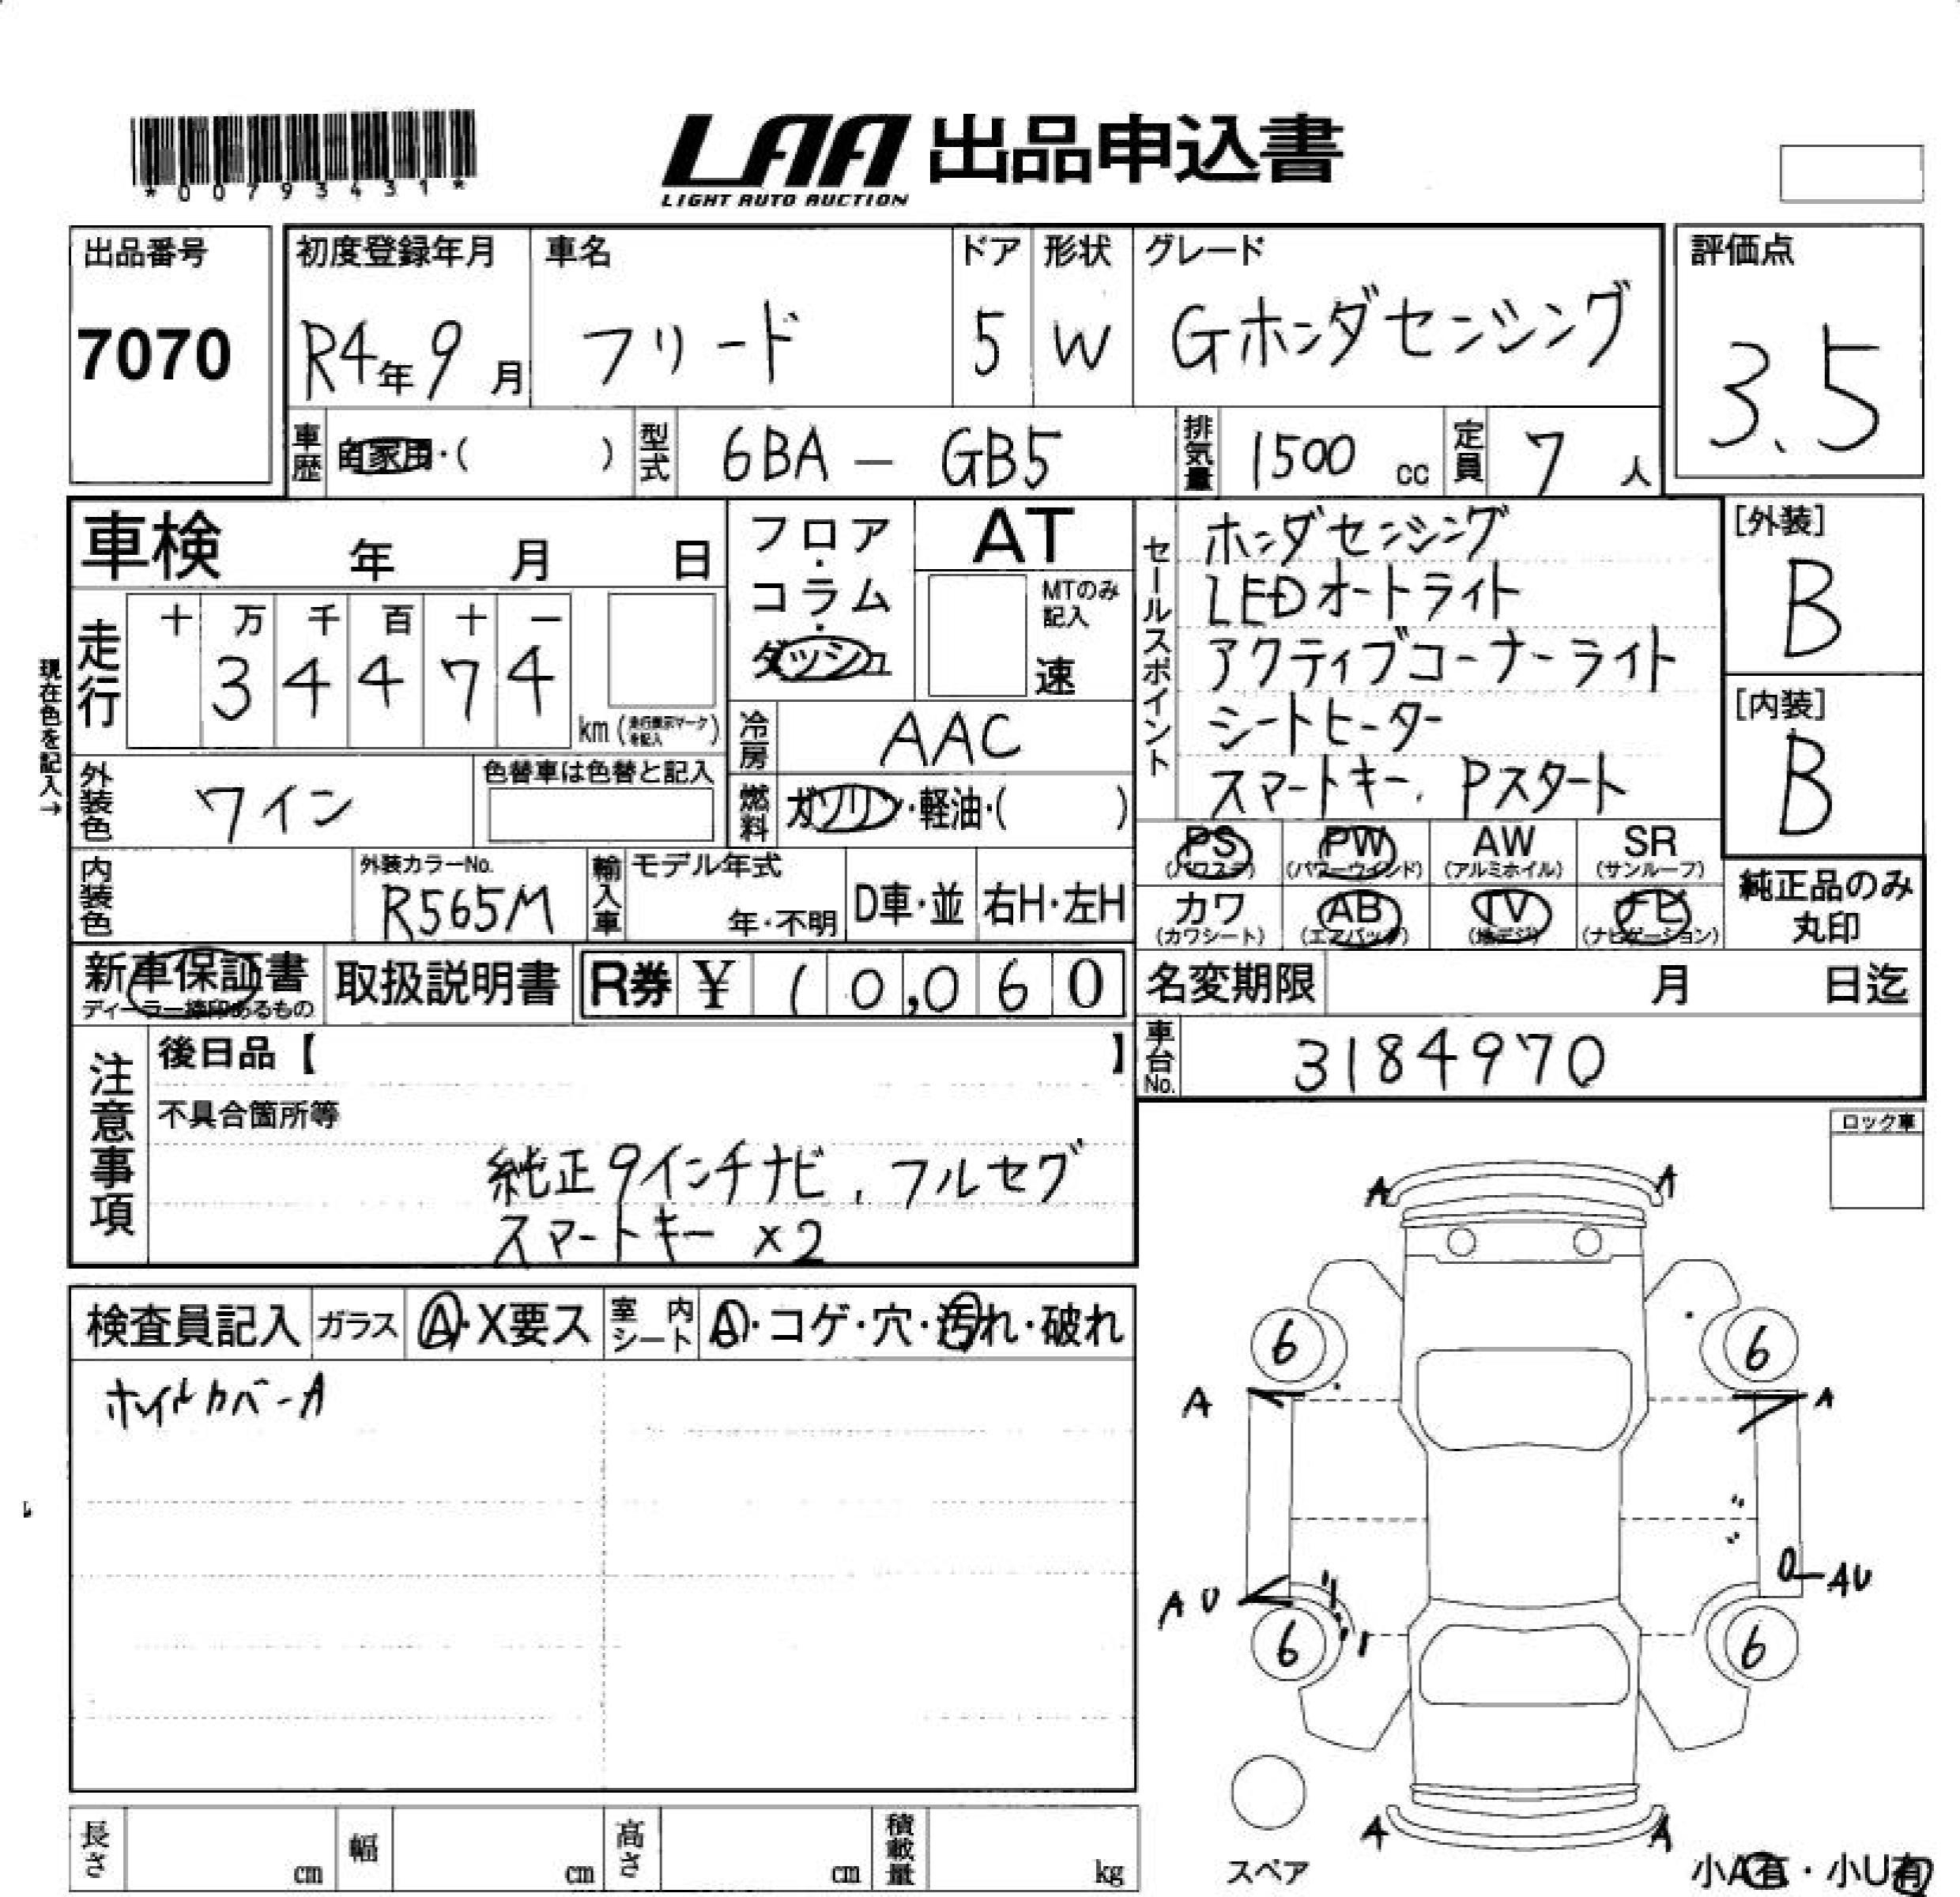 *00793431*
LAA 出品申込書
LIGHT AUTO AUCTION
出品番号
7070
初度登録年月
R4年9月
車名
フリード
ドア
5
形状
W
グレード
Gホンダセンシング
評価点
3.5
車歴
自家用・( )
型式
6BA - GB5
排気量
1500 cc
定員
7 人
現在色を記入→
車検 年 月 日
走行
十 万 千 百 十 一
3 4 4 7 4
km (走行表示マークを記入)
フロア・コラム・ダッシュ
AT
MTのみ記入
速
冷房
AAC
燃料
ガソリン・軽油・( )
外装色
ワイン
色替車は色替と記入
内装色
外装カラーNo.
R565M
輸入車
モデル年式
年・不明
D車・並
右H・左H
セールスポイント
ホンダセンシング
LEDオートライト
アクティブコーナーライト
シートヒーター
スマートキー、Pスタート
[外装]
B
[内装]
B
PS (パワステ)
PW (パワーウインド)
AW (アルミホイル)
SR (サンルーフ)
カワ (カワシート)
AB (エアバック)
TV (地デジ)
ナビ (ナビゲーション)
純正品のみ
丸印
新車保証書
ディーラー捺印あるもの
取扱説明書
R券 ¥ 10,060
名変期限 月 日迄
車台No.
3184970
注意事項
後日品【 】
不具合箇所等
純正9インチナビ、フルセグ
スマートキー ×2
ロック車
検査員記入
ガラス
A・X要ス
室内シート
A・コゲ・穴・汚れ・破れ
ホイルカバーA
A A
6 6
A A
AU AU
6 6
A A
スペア
小A有・小U有
長さ cm
幅 cm
高さ cm
積載量 kg